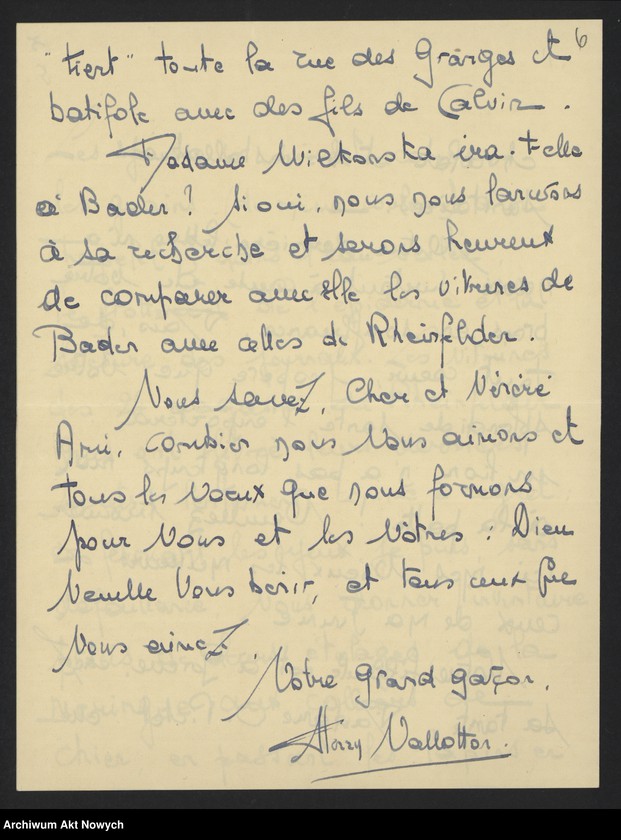 6
"tient" toute la rue des Granges et
batifole avec des fils de Calvin.
Madame Wielkowska ira-t-elle
à Baden? Si oui, nous nous lancerons
à sa recherche et serons heureux
de comparer avec Elle les vitrines de
Baden avec celles de Rheinfelden.
Vous savez, Cher et Vénéré
Ami, combien nous Vous aimons et
tous les voeux que nous formons
pour Vous et les Vôtres: Dieu
Veuille Vous bénir, et tous ceux que
Vous aimez.
Votre Grand garçon.
Henry Vallotton.
Archiwum Akt Nowych